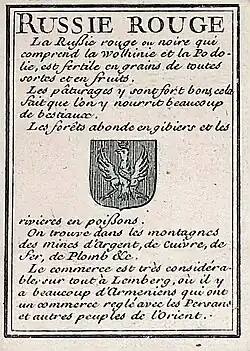 RUSSIE ROUGE
La Russie rouge ou noire qui
comprend la Wolhinie et la Podo-
lie, est fertile en grains de toutes
sortes et en fruits.
Les pâturages y sont fort bons, cela
fait que l'on y nourrit beaucoup
de bestiaux.
Les forêts abonde en gibiers et les
rivieres en poissons.
On trouve dans les montagnes
des mines d'argent, de Cuivre, de
Fer, de Plomb &c.
Le commerce est très considéra-
ble sur tout à Lemberg, où il y
a beaucoup d'Armeniens qui ont
un commerce reglé avec les Persans
et autres peuples de l'Orient.